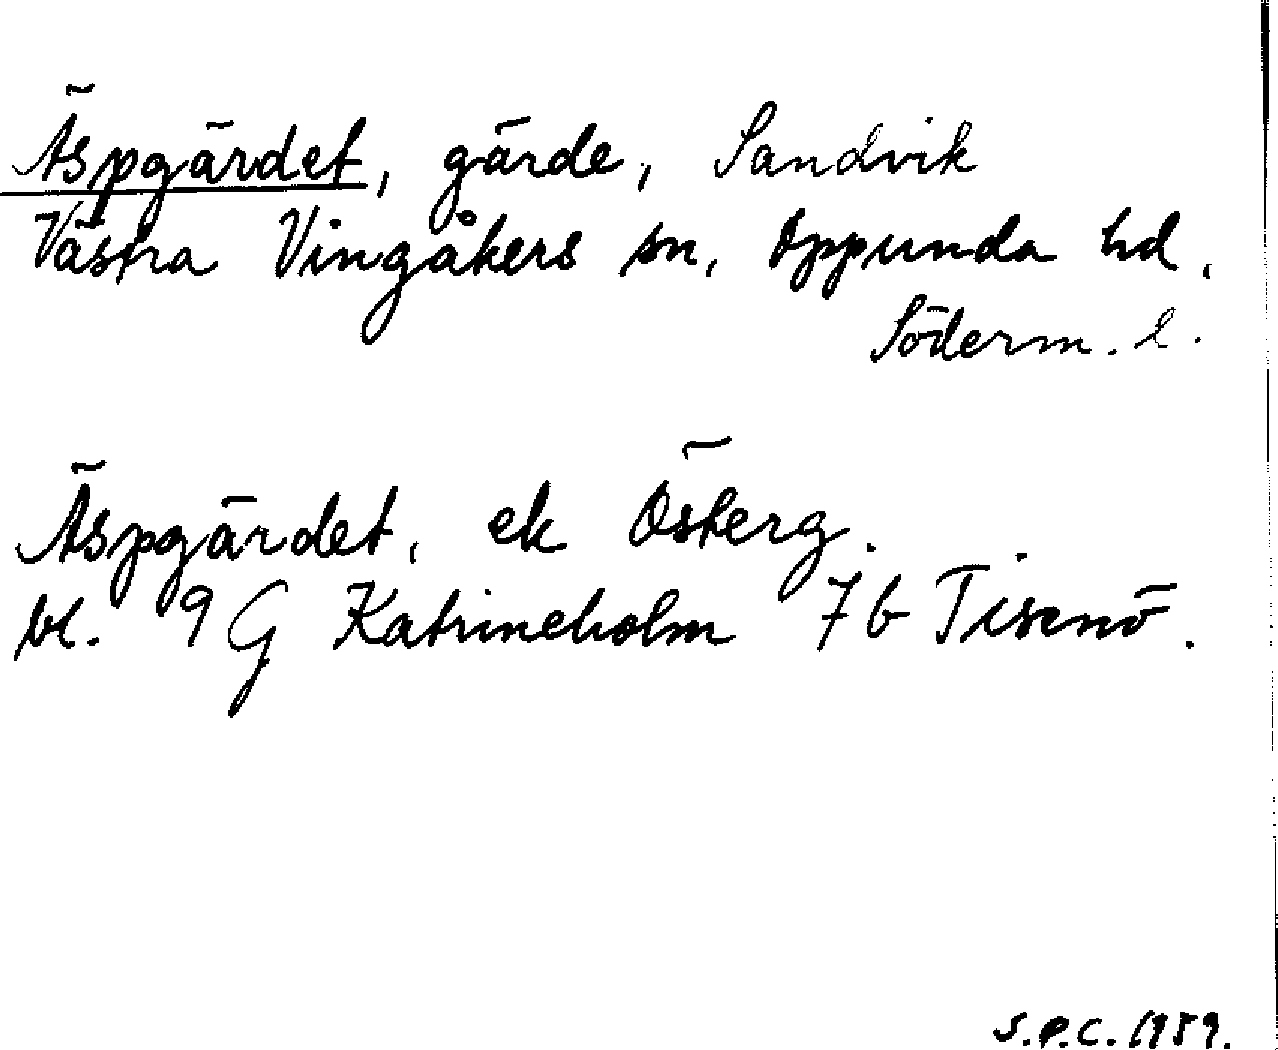 Äspgärdet, gärde, Sandvik
Västra Vingåkers sn, Oppunda hd,
Söderm. l.
Äspgärdet, ek Österg.
bl. 9 G Katrineholm 7b Tisenö.
S.P.C. 1959.